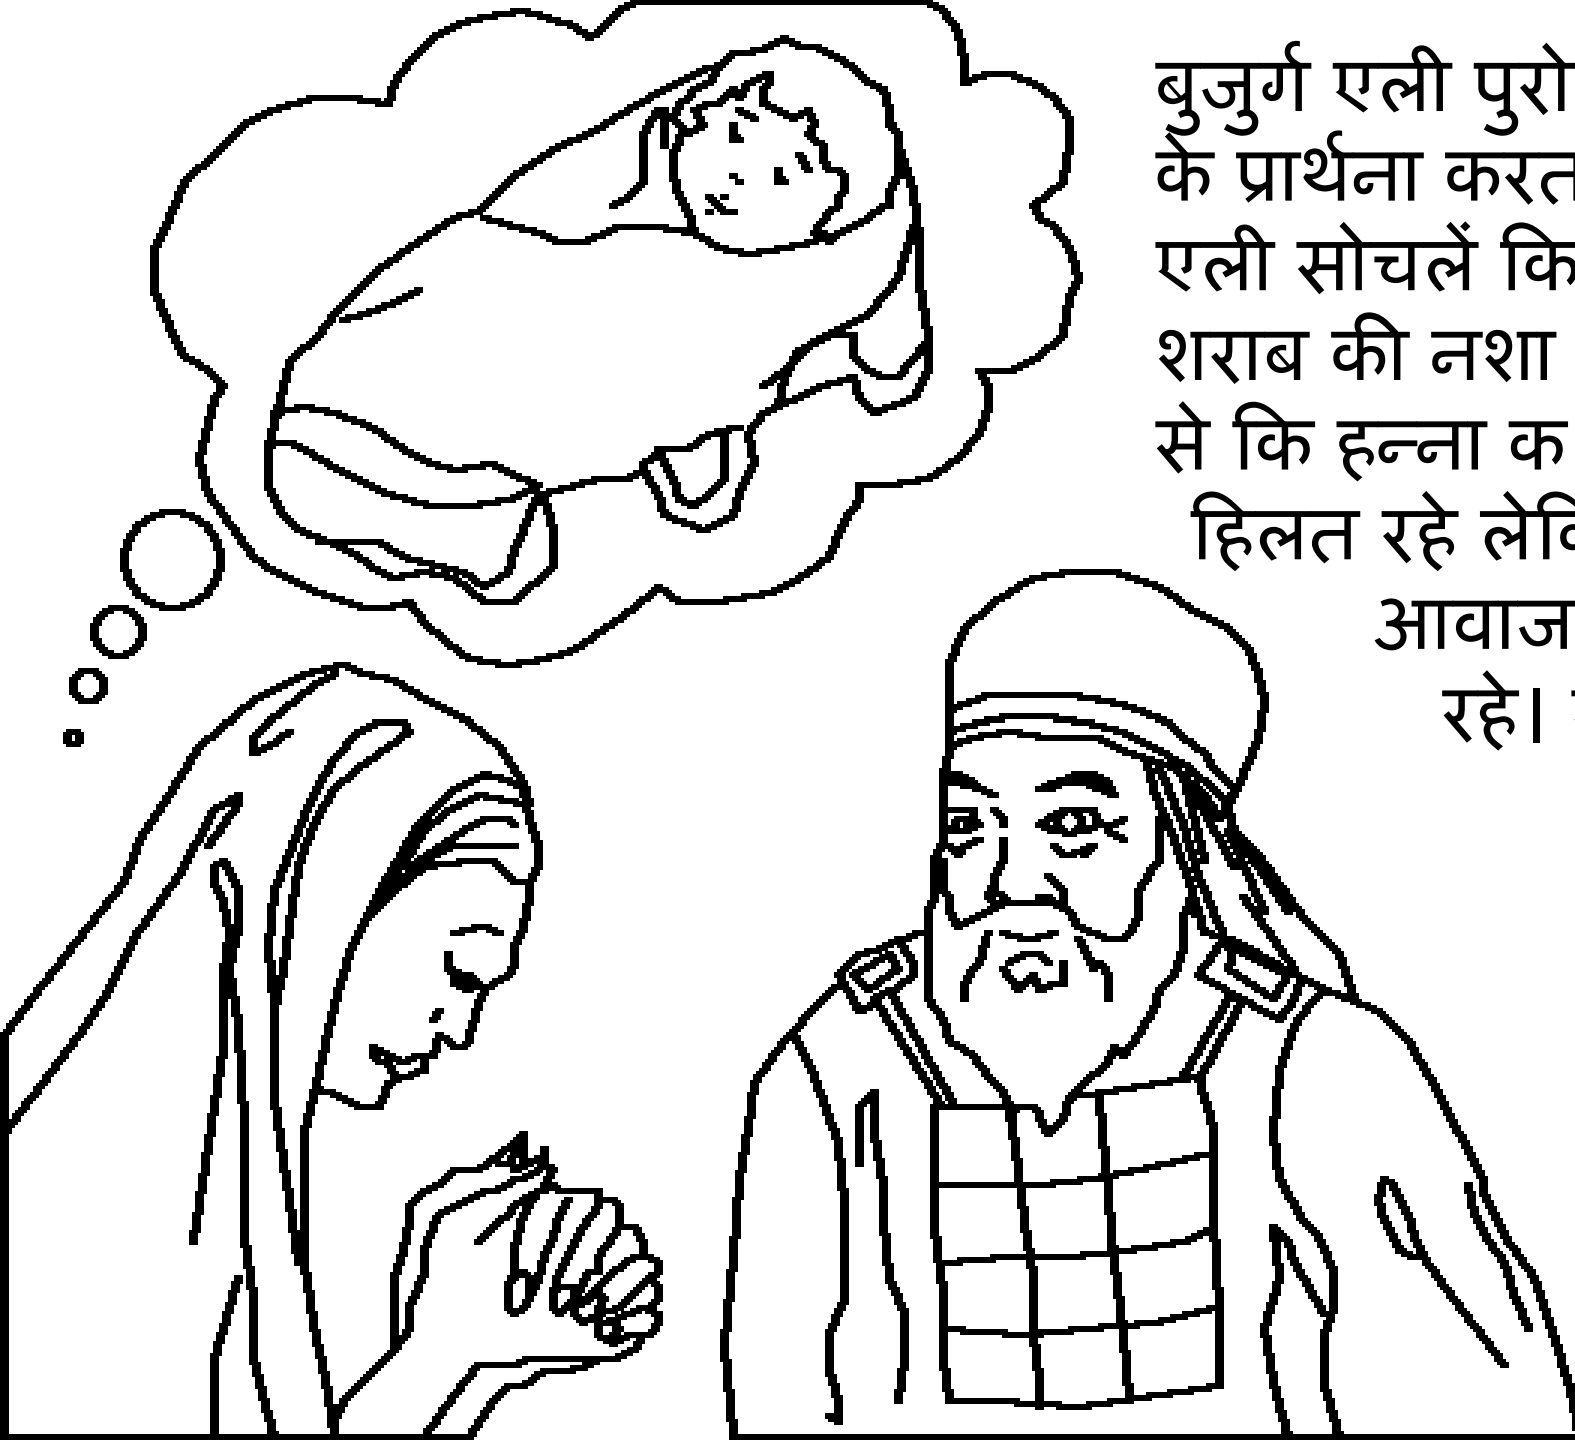 बुजुर्ग एली पुरो
के प्रार्थना करत
एली सोचलें कि
शराब की नशा
से कि हन्ना क
हिलत रहे
आवाज
रहे।